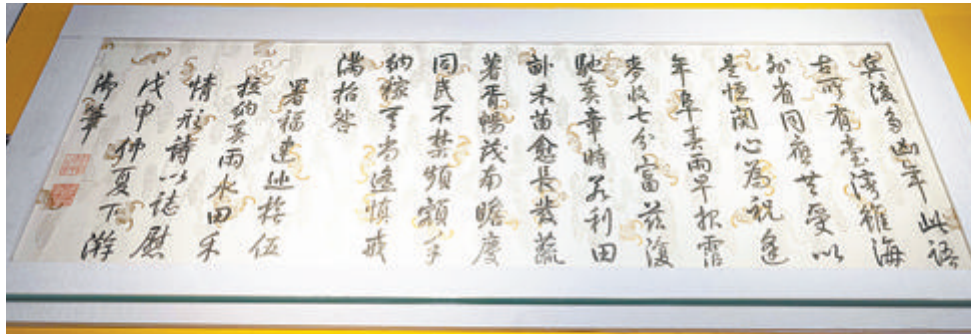 兵後多凶年此語
古所有臺灣雖海
外省同應受以
是恒關心為祝逢
年阜春雨早報霑
麥收七分富茲復
馳奏章時若利田
禾苗愈長發蔬
薯胥暢茂南瞻慶
同民不禁頻額手
納稼尚遠慎戒
滿招咎
署福建巡撫伍
拉納奏雨水田禾
情形詩以誌慰
戊申仲夏下澣
御筆